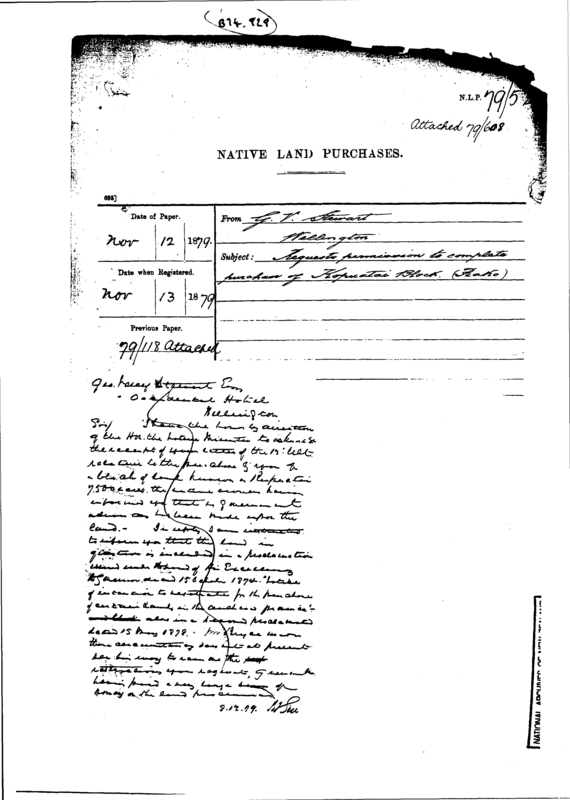 B74.829
N.L.P. 79/5
Attached 79/608
NATIVE LAND PURCHASES.
Date of Paper.
Nov 12 1879.
Date when Registered.
Nov 13 1879
Previous Paper.
79/118 Attached
From G. V. Stewart
Wellington
Subject: Requests permission to complete
purchase of Kopuatai Block. (Piako)
Geo. Vesey Stewart Esq
Occidental Hotel
Wellington
Sir I have the honor by direction
of the Hon. the Native Minister to acknowledge
the receipt of your letter of the 12th Ult
relative to the purchase by you of
a block of land known as Kopuatai
7,500 acres, the native owners having
informed you that no Government
advances has been made upon the
land. In reply I am
to inform you that the land in
question is included in a proclamation
issued under the hand of His Excellency
the Governor dated 15 October 1874. Notice
of intention to negotiate for the purchase
of certain lands in the Auckland province
also in a second proclamation
dated 15 May 1878. under
these circumstances does not at present
see his way to remove the
restrictions upon request, Government
having paid a very large sum of
money on the land
8.12.79.
NATIONAL ARCHIVES OF NEW ZEALAND